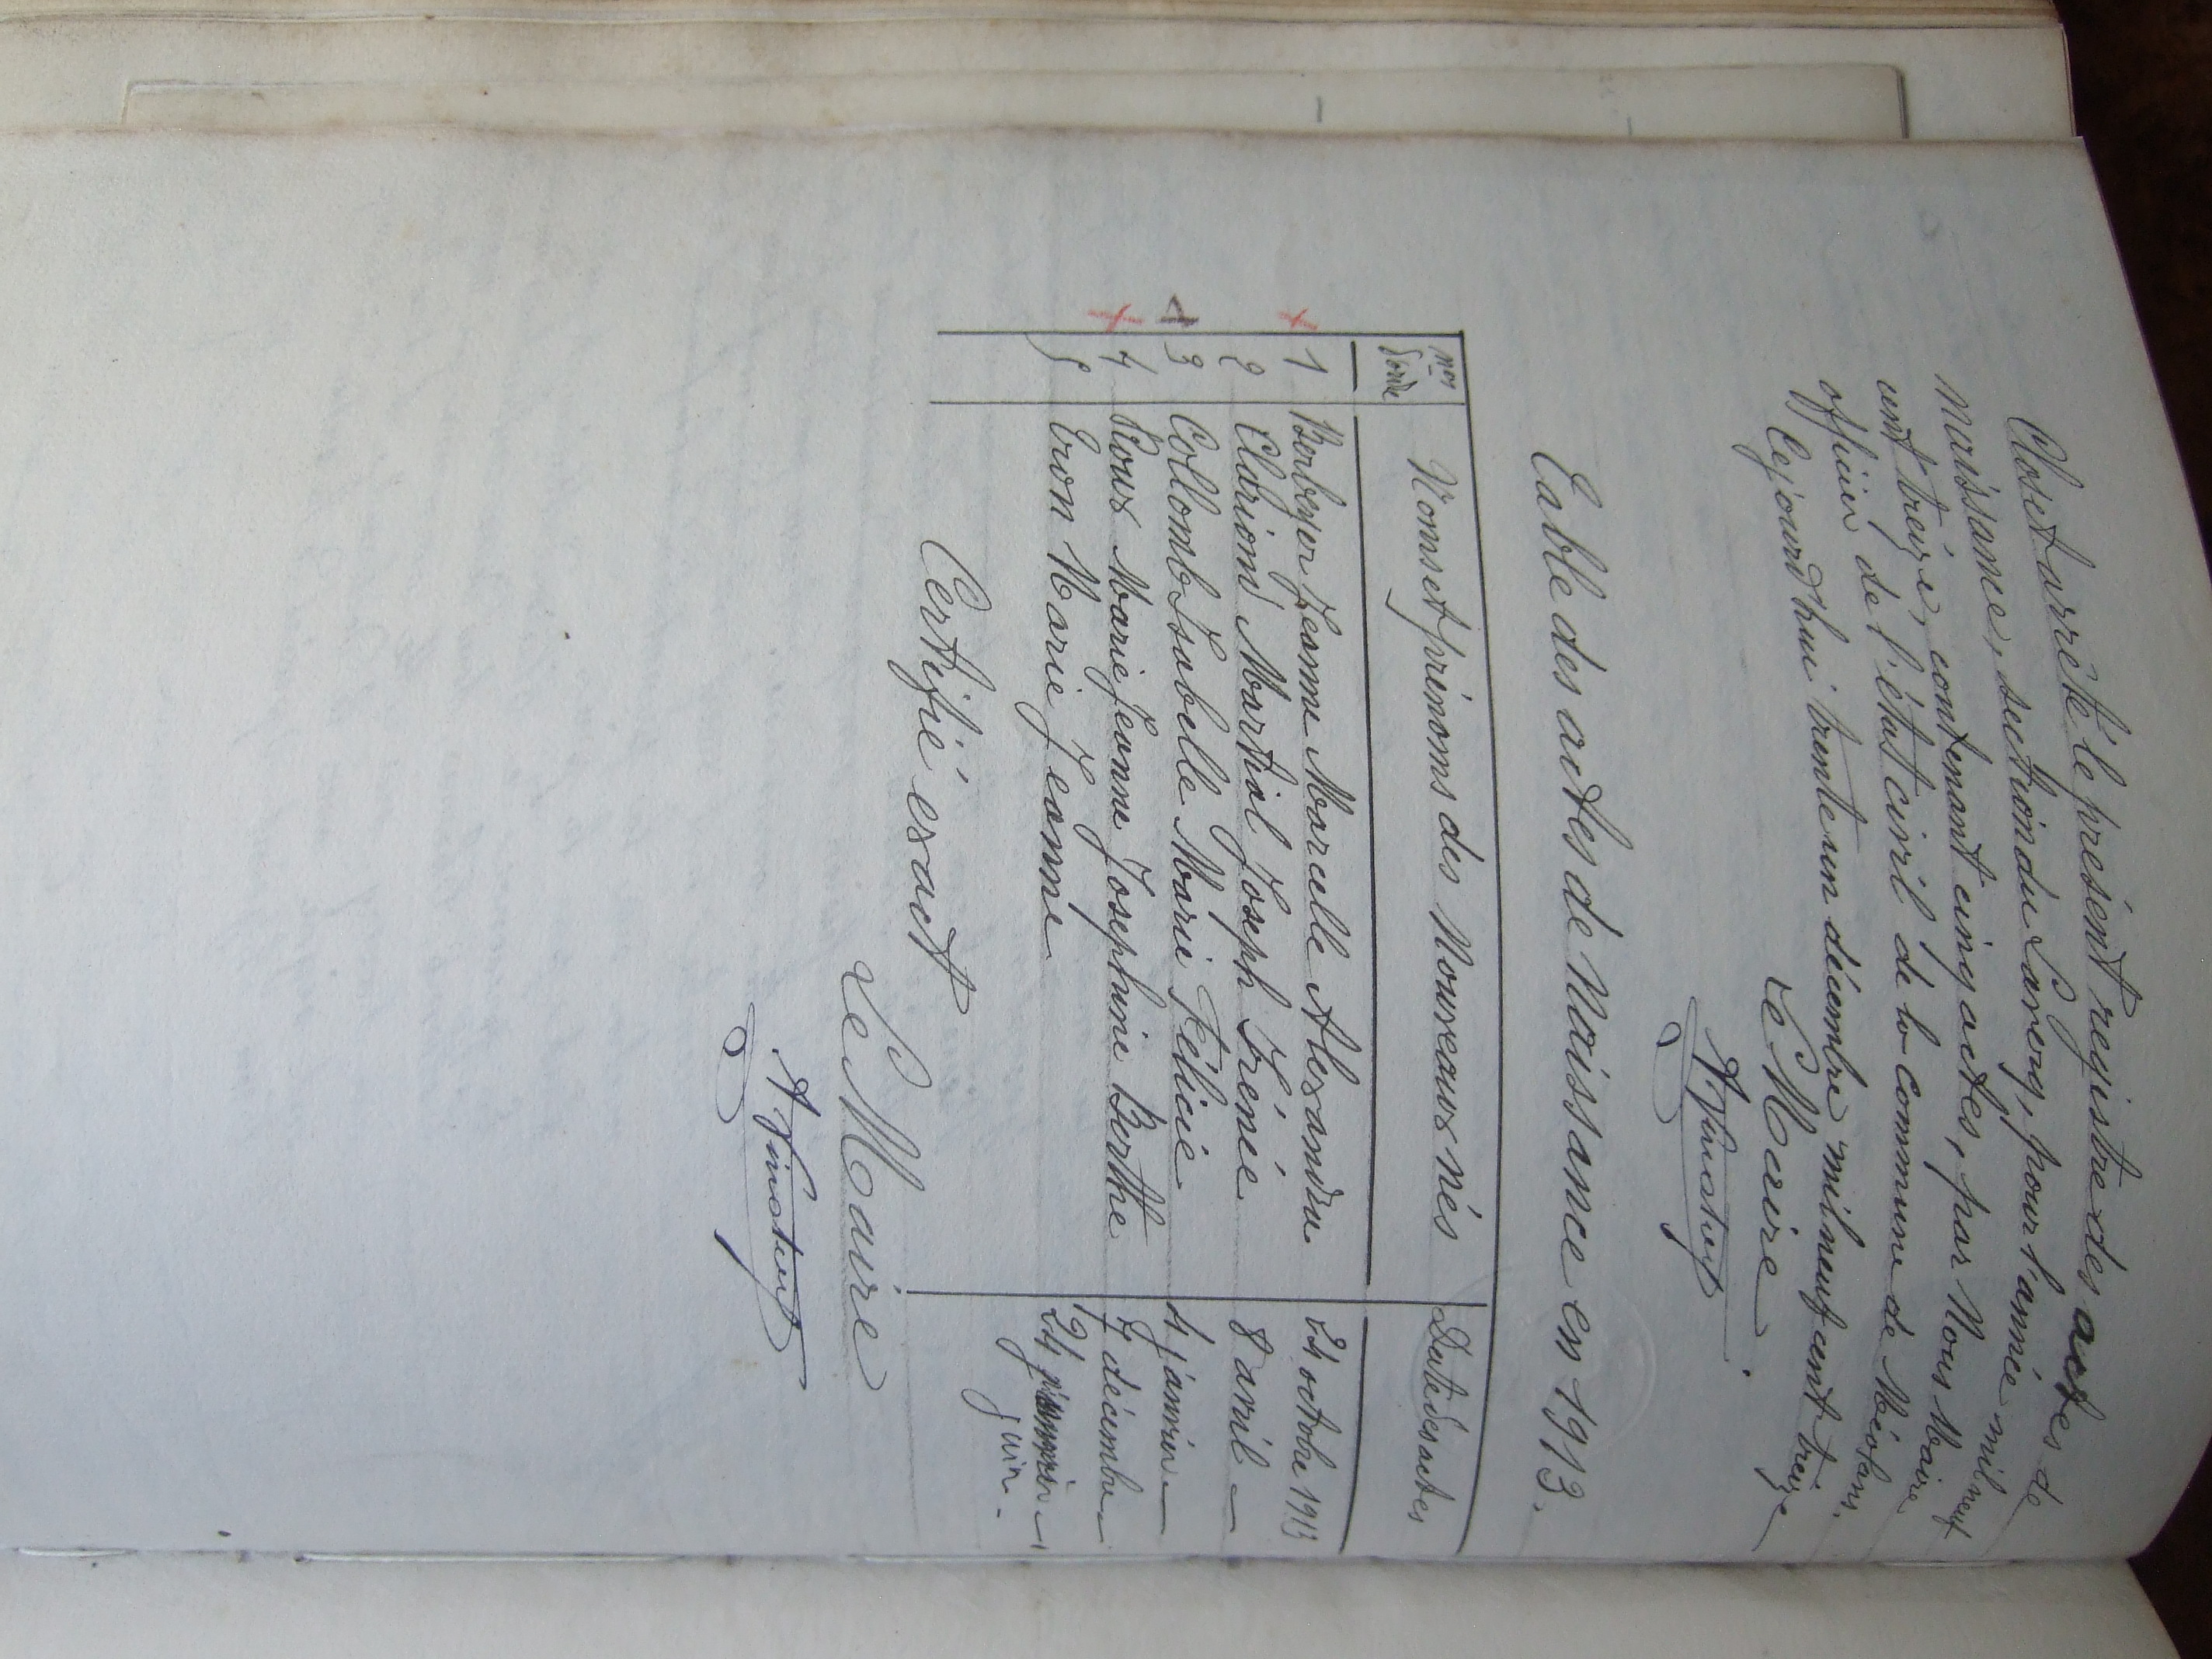 Clos et arrêté le présent registre des actes de
naissance, section du Lavercq, pour l'année mil neuf
cent treize, contenant cinq actes, par Nous Maire
officier de l'état civil de la commune de Méolans
Cejourd'hui trente un décembre mil neuf cent treize
Le Maire
Table des actes de Naissance en 1913.
nos d'ordre Noms et prénoms des Nouveaux nés Date des actes
1 Berbeyer Jeanne Marcelle Alexandra 24 octobre 1913
2 Clariond Martial Joseph Irénée 8 avril –
3 Collomb Isabelle Marie Félicie 4 janvier –
4 Roux Marie Jeanne Josephine Berthe 17 décembre –
5 Tron Marie Jeanne 24 juin –
Certifié exact
Le Maire